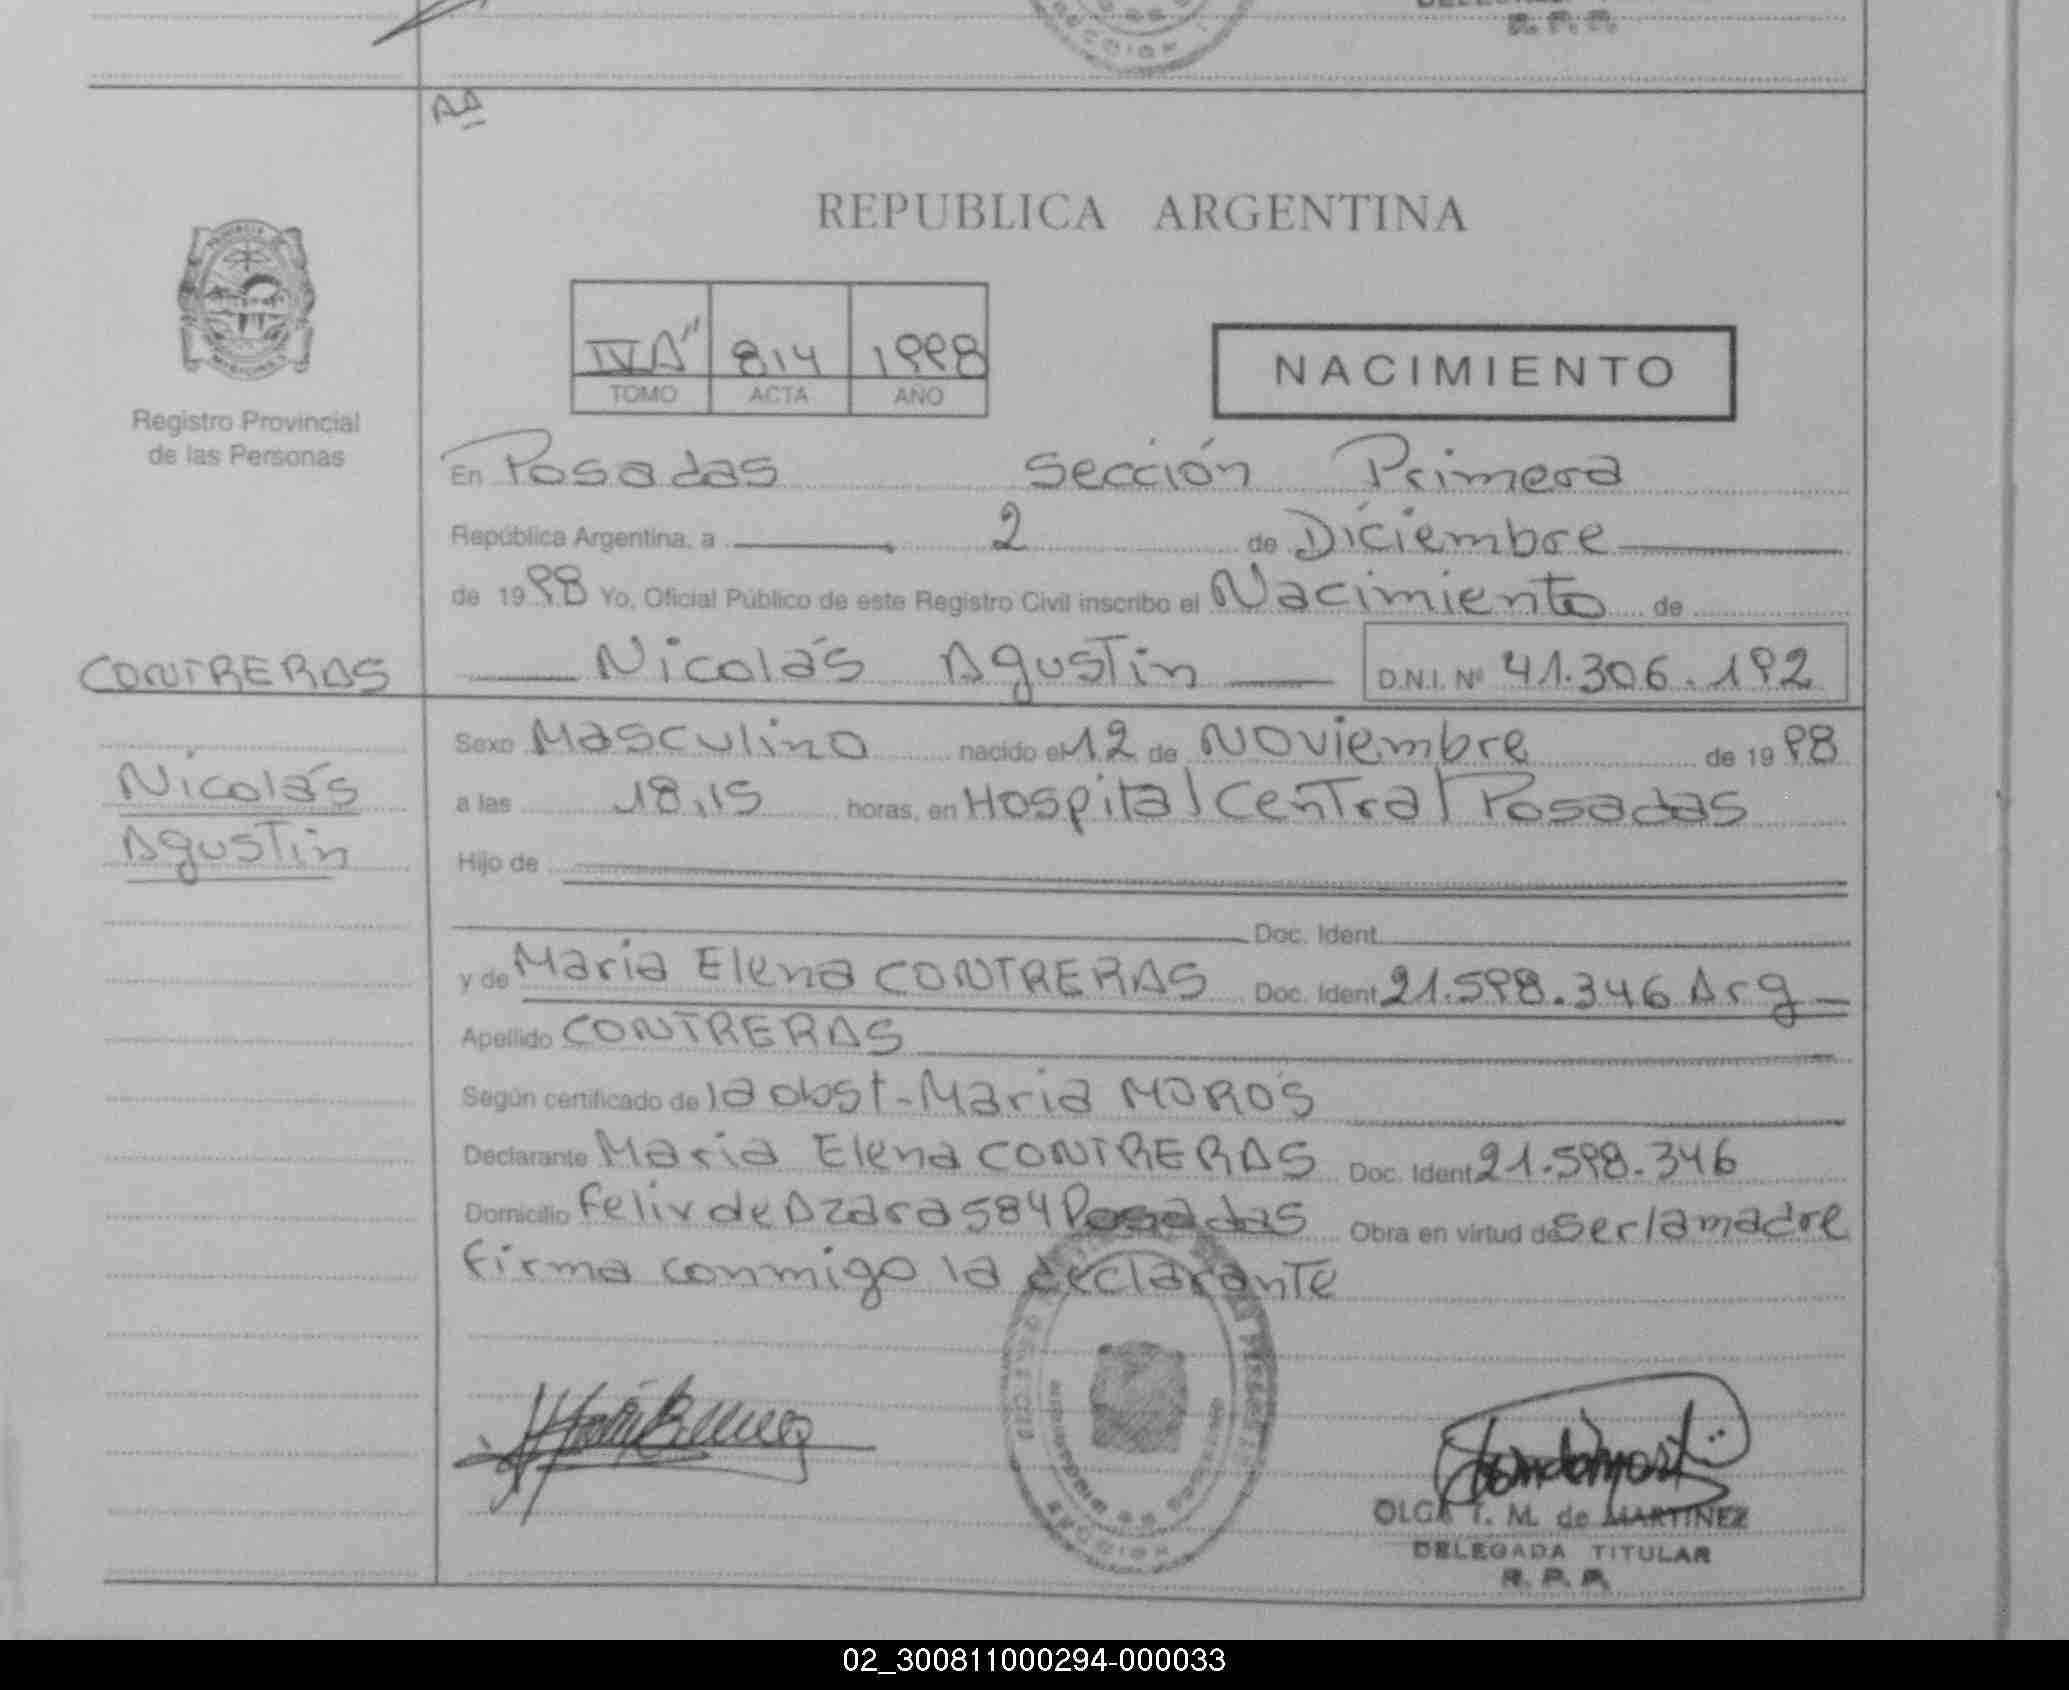 R. P. P.
Aª
REPUBLICA ARGENTINA
IV A" 814 1998
TOMO ACTA AÑO
NACIMIENTO
Registro Provincial
de las Personas
En Posadas Sección Primera
República Argentina, a 2 de Diciembre
de 1998 Yo, Oficial Público de este Registro Civil inscribo el Nacimiento de
Nicolás Agustin D.N.I. Nº 41.306.192
CONTRERAS
Nicolás
Agustin
Sexo Masculino nacido el 12 de Noviembre de 1998
a las 18,15 horas, en Hospital Central Posadas
Hijo de
Doc. Ident.
y de Maria Elena CONTRERAS Doc. Ident. 21.598.346 Arg
Apellido CONTRERAS
Según certificado de la obst. Maria MOROS
Declarante Maria Elena CONTRERAS Doc. Ident. 21.598.346
Domicilio Felix de Azara 584 Posadas Obra en virtud de ser la madre
firma conmigo la declarante
OLGA T. M. de MARTINEZ
DELEGADA TITULAR
R. P. P.
02_300811000294-000033